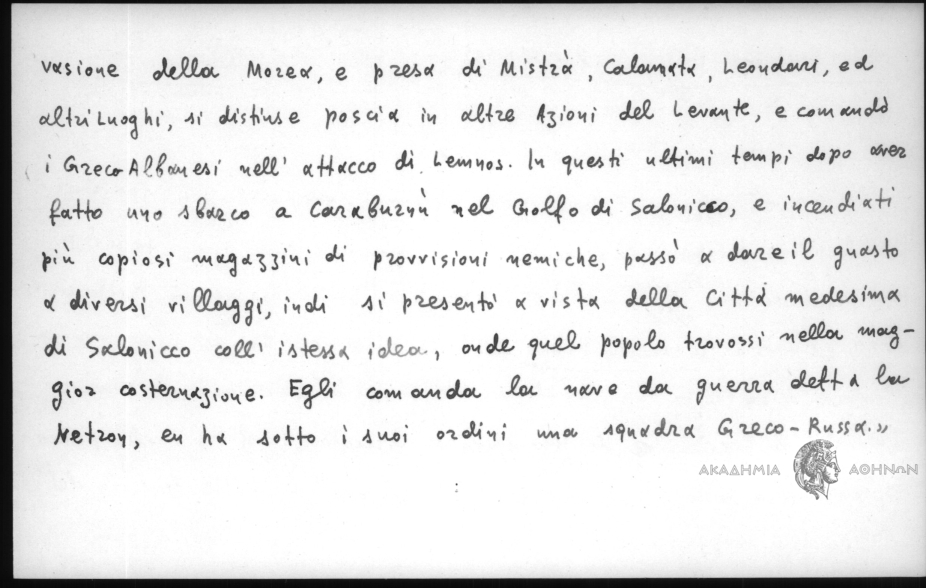 vasione della Morea, e presa di Mistrà, Calamata, Leondari, ed
altri Luoghi, si distinse poscia in altre Azioni del Levante, e comandò
i Greco-Albanesi nell' attacco di Lemnos. In questi ultimi tempi dopo aver
fatto uno sbarco a Caraburnù nel Golfo di Salonicco, e incendiati
più copiosi magazzini di provvisioni nemiche, passò a dare il guasto
a diversi villaggi, indi si presentò a vista della Città medesima
di Salonicco coll' istessa idea, onde quel popolo trovossi nella mag-
gior costernazione. Egli comanda la nave da guerra detta la
Netron, en ha sotto i suoi ordini una squadra Greco-Russa.»
ΑΚΑΔΗΜΙΑ ΑΘΗΝΩΝ